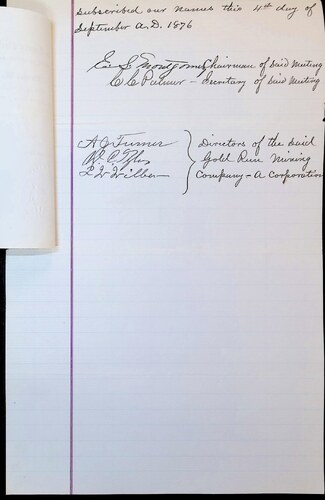 subscribed our names this 4th day of
September A.D. 1876
E. S. Montgomery Chairman of Said Meeting
C C Palmer - Secretary of Said Meeting
A J Turner
Directors of the said
W. C. Tyler
Gold Run Mining
L W Wilber
Company - A Corporation